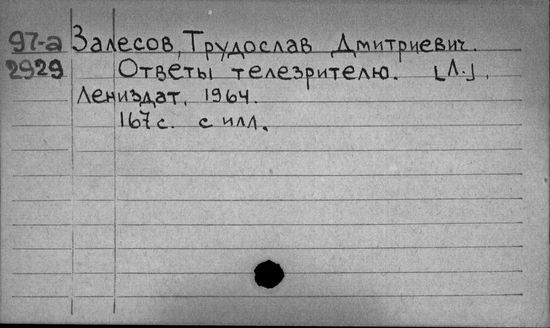 97-а Залесов, Трудослав Дмитриевич.
2929 Ответы телезрителю. [Л.],
Лениздат, 1964.
167 с. с илл.